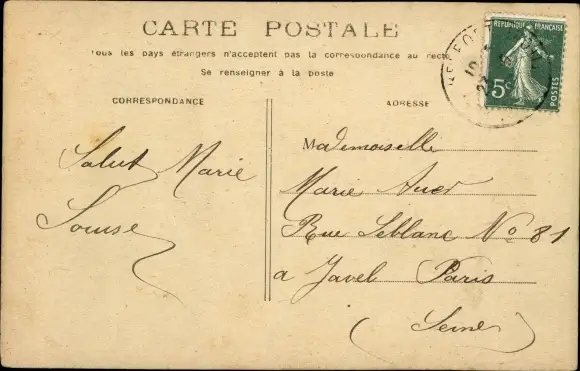 CARTE POSTALE
Tous les pays étrangers n'acceptent pas la correspondance au recto
Se renseigner à la poste
CORRESPONDANCE
ADRESSE
RÉPUBLIQUE FRANÇAISE
5c
POSTES
Salut Marie
Louise
Mademoiselle
Marie
Rue Leblanc No 81
a Javel Paris
(Seine)